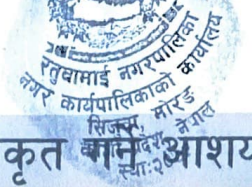 रतुवामाई नगरपालिका
नगर कार्यपालिकाको कार्यालय
सिजुवा, मोरङ
प्रदेश, नेपाल
कृत गर्ने आशय